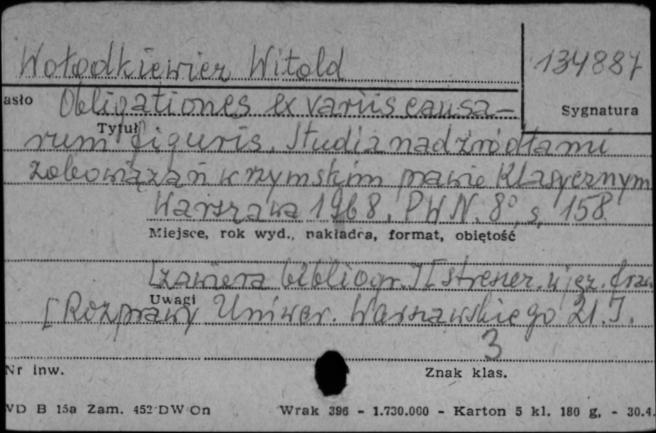 Wołodkiewicz Witold
134887
asło
Obligationes ex variis causa-
Sygnatura
Tytuł
rum figuris. Studia nad źródłami
zobowiązań w rzymskim prawie klasycznym
Warszawa 1968. PWN. 8° s. 158
Miejsce, rok wyd., nakładca, format, objętość
[zawiera bibliogr.] [streszcz. w jęz. franc
Uwagi
[Rozprawy Uniwer. Warszawskiego 21.].
3
Nr inw.
Znak klas.
WD B 15a Zam. 452 DW On
Wrak 396 - 1.730.000 - Karton 5 kl. 180 g. - 30.4.